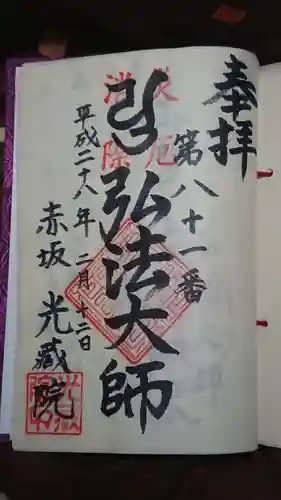 奉拝
第八十一番
災厄
消除
弘法大師
平成二十八年 二月十二日
赤坂 光蔵院